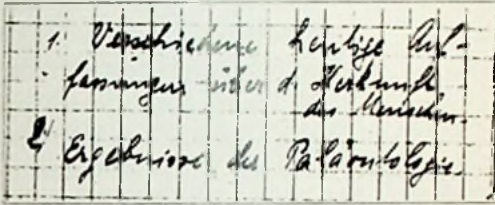 1. Verschiedene heutige Auf-
fassungen über d. Herkunft
des Menschen.
2. Ergebnisse der Paläontologie.